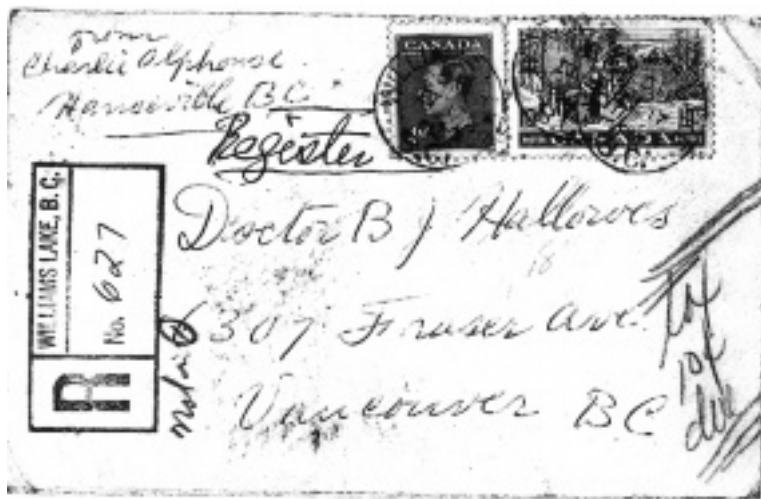 from
Charlie Alphonse
Hanceville B.C.
Register
CANADA
CANADA
WILLIAMS LAKE, B. C.
No. 627
R
Doctor B J Hallowes
6307 Fraser Ave.
Vancouver BC
10¢
due